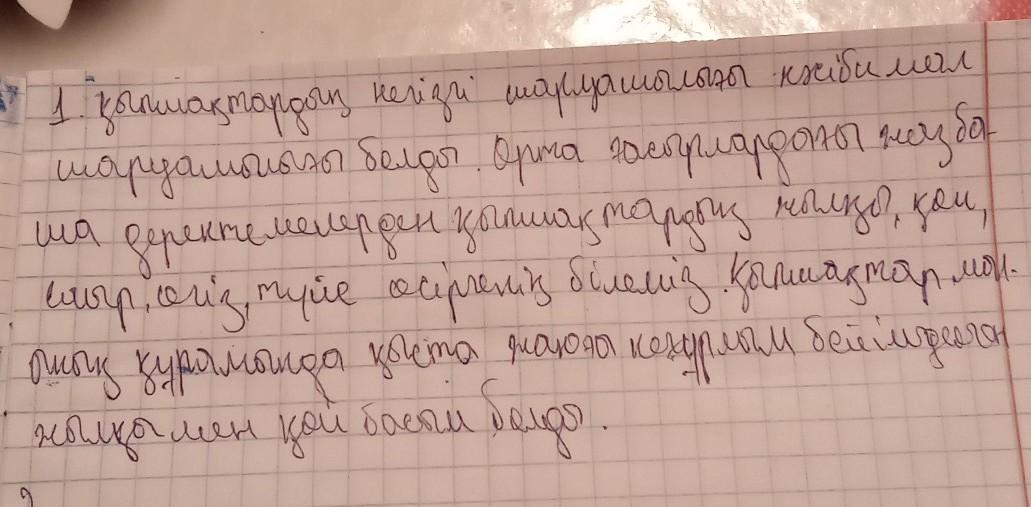 1. қыпшақтардың негізгі шаруашылығы көшбімал
шаруашылығы болды. Орта ғасырлардағы жазба-
ша деректемелерден қыпшақтардың жылқы, қой,
сиыр, өгіз, түйе өсіргенің білеміз. қыпшақтар мал-
ының құрамында қыста жаюға неғұрлым бейімделген
жылқы мен қой басым болды.